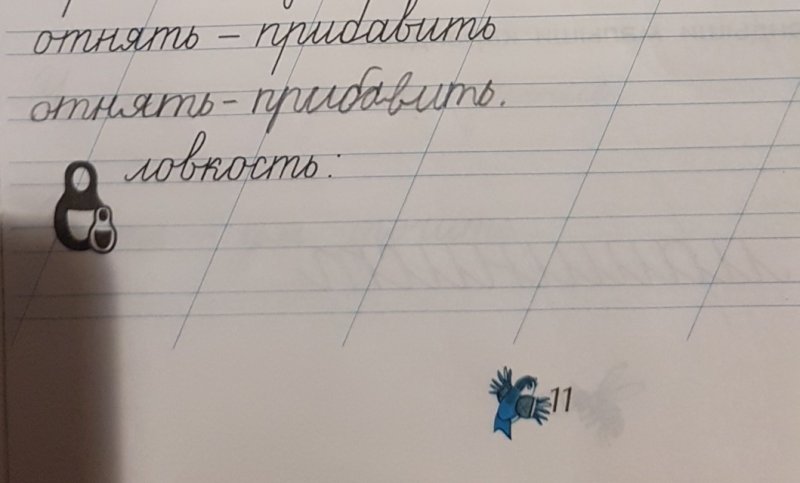 отнять – прибавить
отнять - прибавить.
ловкость:
11